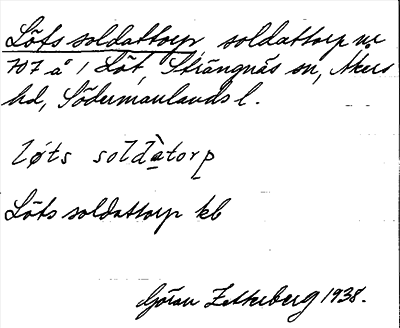 Löts soldattorp, soldattorp nr
707 å 1 Löt, Strängnäs sn, Åkers
hd, Södermanlands l.
løts sold̀a̱torp̱
Löts soldattorp kb
Göran Zetterberg 1938.